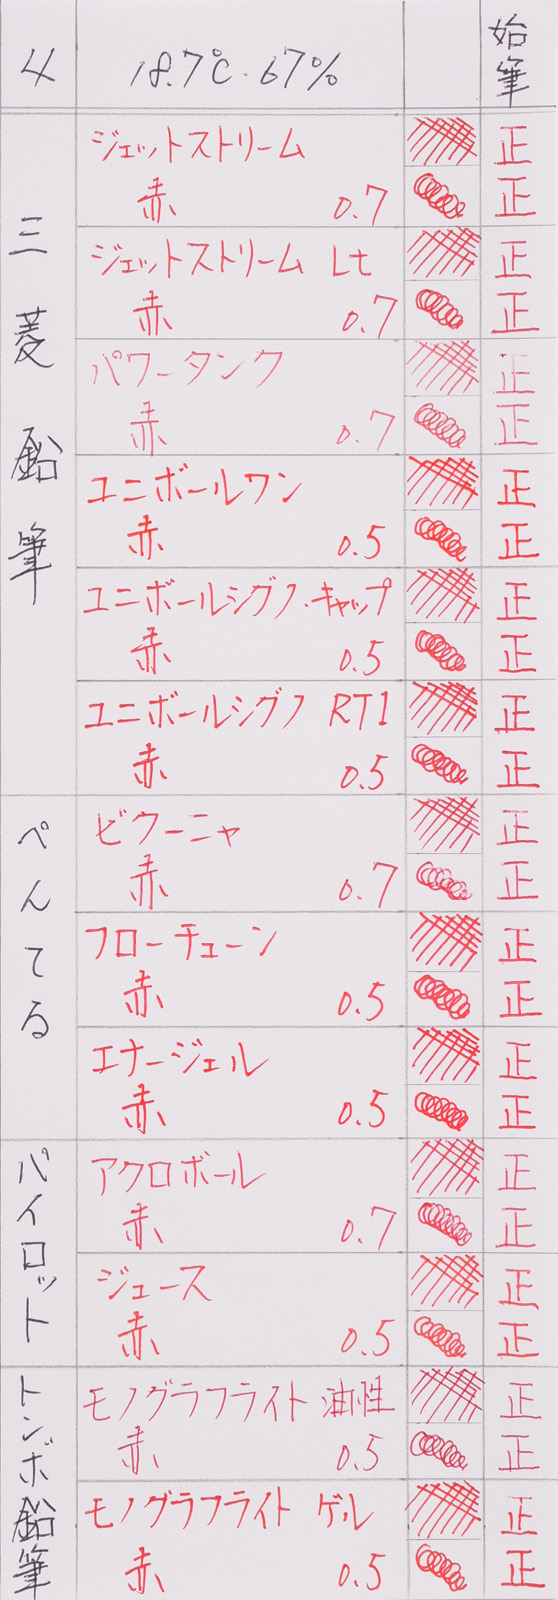 4 18.7℃・67% 始筆
三菱鉛筆
ジェットストリーム 正
赤 0.7 正
ジェットストリーム Lt 正
赤 0.7 正
パワータンク 正
赤 0.7 正
ユニボールワン 正
赤 0.5 正
ユニボールシグノ・キャップ 正
赤 0.5 正
ユニボールシグノ RT1 正
赤 0.5 正
ぺんてる
ビクーニャ 正
赤 0.7 正
フローチューン 正
赤 0.5 正
エナージェル 正
赤 0.5 正
パイロット
アクロボール 正
赤 0.7 正
ジュース 正
赤 0.5 正
トンボ鉛筆
モノグラフライト 油性 正
赤 0.5 正
モノグラフライト ゲル 正
赤 0.5 正